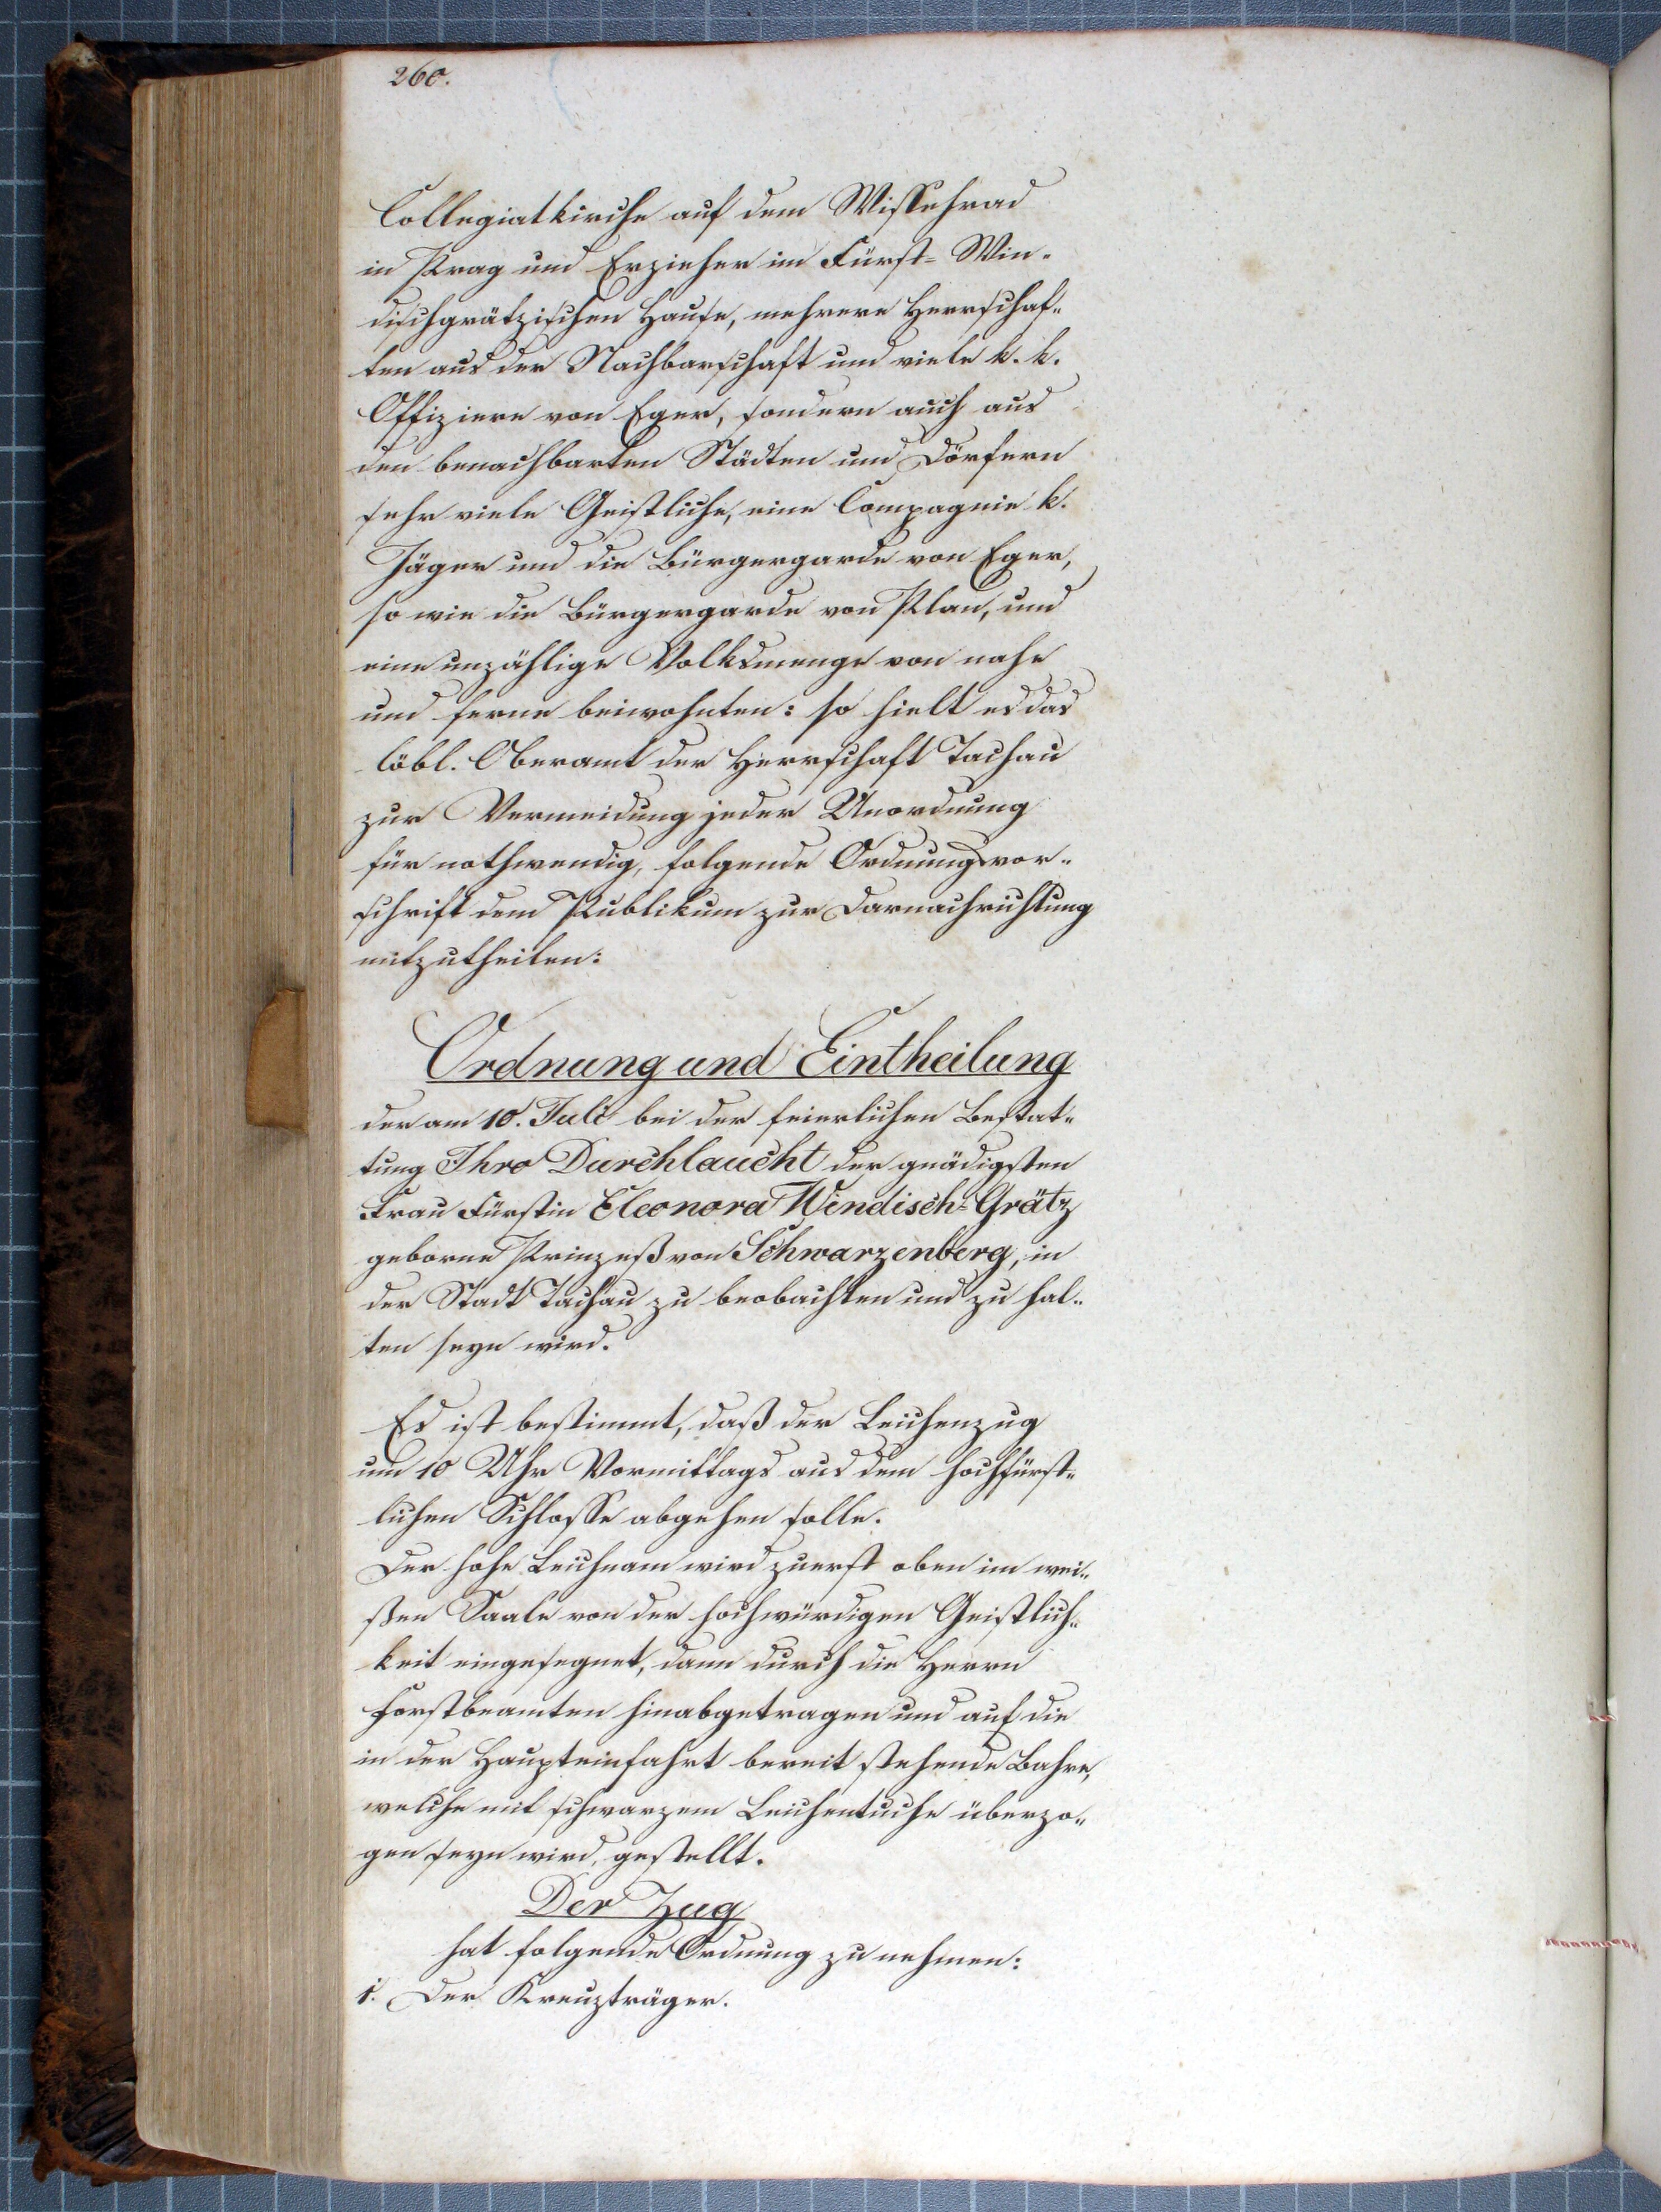 260.
Collegiatkirche auf dem Wissehrad
in Prag und Erzieher im Fürst- Win-
dischgrätzischen Hause, mehrere Herrschaf-
ten aus der Nachbarschaft und viele k. k.
Offiziere von Eger, sondern auch aus
den benachbarten Städten und Dörfern
sehr viele Geistliche, eine Compagnie k.
Jäger und die Bürgergarde von Eger,
so wie die Bürgergarde von Plan, und
eine unzählige Volksmenge von nahe
und ferne beiwohnten: so hielt es das
löbl. Oberamt der Herrschaft Tachau
zur Vermeidung jeder Unordnung
für nothwendig, folgende Ordnungsvor-
schrift dem Publikum zur Darnachrichtung
mitzutheilen:
Ordnung und Eintheilung
der am 10. Juli bei der feierlichen Bestat-
tung Ihro Durchlaucht der gnädigsten
Frau Fürstin Eleonora Windisch-Grätz
geborne Prinzeß von Schwarzenberg, in
der Stadt Tachau zu beobachten und zu hal-
ten seyn wird.
Es ist bestimmt, daß der Leichenzug
um 10 Uhr Vormittags aus dem hochfürst-
lichen Schlosse abgehen solle.
Der hohe Leichnam wird zuerst oben im wei-
ßen Saale von der hochwürdigen Geistlich-
keit eingesegnet, dann durch die Herrn
Forstbeamten hinabgetragen und auf die
in der Haupteinfahrt bereit stehende Bahre,
welche mit schwarzem Leichentuche überzo-
gen seyn wird, gestellt.
Der Zug
hat folgende Ordnung zu nehmen:
1. Der Kreuzträger.